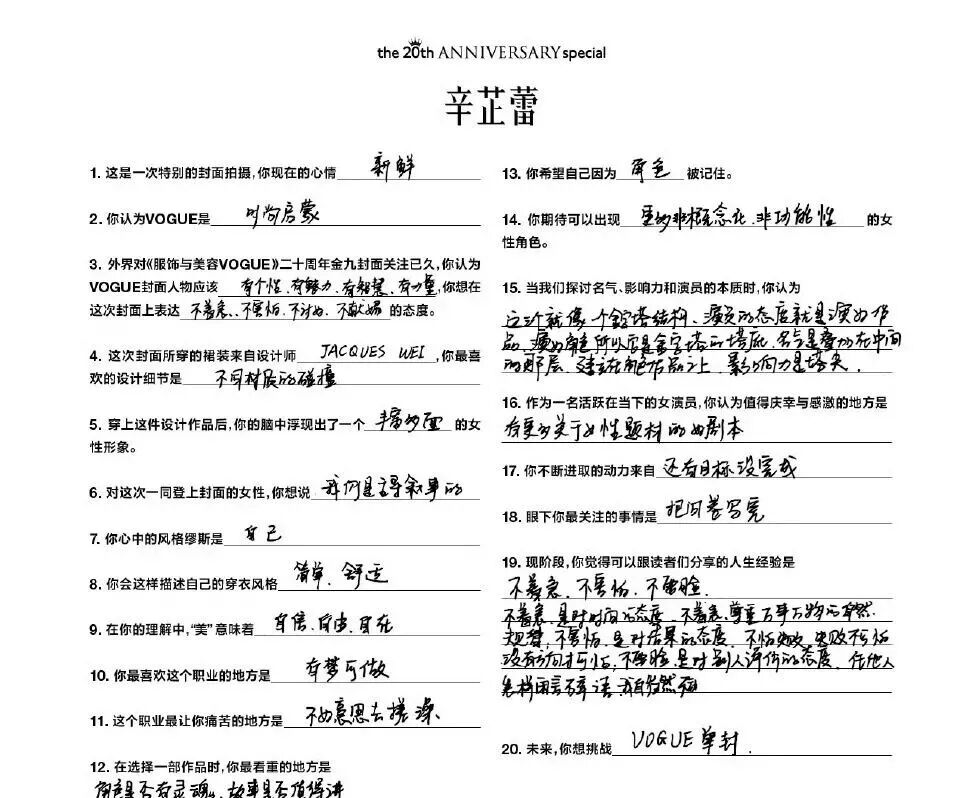 the 20th ANNIVERSARY special
辛芷蕾
1. 这是一次特别的封面拍摄,你现在的心情 新鲜
2. 你认为VOGUE是 时尚启蒙
3. 外界对《服饰与美容VOGUE》二十周年金九封面关注已久,你认为
VOGUE封面人物应该 有个性、有魅力、有智慧、有力量,你想在
这次封面上表达 不着急、不害怕、不讨好、不献媚 的态度。
4. 这次封面所穿的裙装来自设计师 JACQUES WEI ,你最喜
欢的设计细节是 不同材质的碰撞
5. 穿上这件设计作品后,你的脑中浮现出了一个 丰富多面 的女
性形象。
6. 对这次一同登上封面的女性,你想说 我们是主导叙事的
7. 你心中的风格缪斯是 自己
8. 你会这样描述自己的穿衣风格 简单、舒适
9. 在你的理解中,“美”意味着 自信、自由、自在
10. 你最喜欢这个职业的地方是 有梦可做
11. 这个职业最让你痛苦的地方是 不好意思去搓澡、
12. 在选择一部作品时,你最看重的地方是
角色是否有灵魂、故事是否值得讲
13. 你希望自己因为 角色 被记住。
14. 你期待可以出现 更多非概念化、非功能性 的女
性角色。
15. 当我们探讨名气、影响力和演员的本质时,你认为
这三个就像一个金字塔结构、演员的态度就是演好作
品,演好角色所以它是金字塔的塔底,名气是叠加在中间
的那层,建立在角色作品之上,影响力是塔尖.
16. 作为一名活跃在当下的女演员,你认为值得庆幸与感激的地方是
有更多关于女性题材的好剧本
17. 你不断进取的动力来自 还有目标没完成
18. 眼下你最关注的事情是 把问卷写完
19. 现阶段,你觉得可以跟读者们分享的人生经验是
不着急、不害怕、不要脸.
不着急,是对时间的态度,不着急、尊重万事万物的自然
规律,不害怕,是对结果的态度,不怕失败,失败不可怕
没有方向才可怕,不要脸,是对别人评价的态度,任他人
怎样、我自岿然不动
20. 未来,你想挑战 VOGUE单封 .